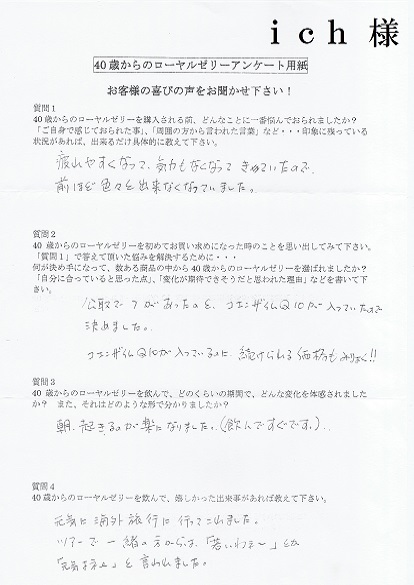 ich 様
40歳からのローヤルゼリーアンケート用紙
お客様の喜びの声をお聞かせ下さい！
質問１
40歳からのローヤルゼリーを購入される前、どんなことに一番悩んでおられましたか？
「ご自身で感じておられた事」、「周囲の方から言われた言葉」など・・・印象に残っている
状況があれば、出来るだけ具体的に教えて下さい。
疲れやすくなって、気力もなくなって きていたので
前ほど色々と出来なくなっていました。
質問２
40歳からのローヤルゼリーを初めてお買い求めになった時のことを思い出してみて下さい。
「質問１」で答えて頂いた悩みを解決するために・・・
何が決め手になって、数ある商品の中から40歳からのローヤルゼリーを選ばれましたか？
「自分に合っていると思った点」、「変化が期待できそうだと思われた理由」などを書いて下
さい。
公取マークがあったのと、コエンザイムQ10が入っていたので
決めました。
コエンザイムQ10が入っているのに 続けられる価格も みりょく!!
質問３
40歳からのローヤルゼリーを飲んで、どのくらいの期間で、どんな変化を体感されました
か？ また、それはどのような形で分かりましたか？
朝、起きるのが楽になりました。(飲んですぐです。)
質問４
40歳からのローヤルゼリーを飲んで、嬉しかった出来事があれば教えて下さい。
元気に海外旅行に行ってこれました。
ツアーで一緒の方からは、「若いわネ〜」とか
「元気ネェ」と言われました。